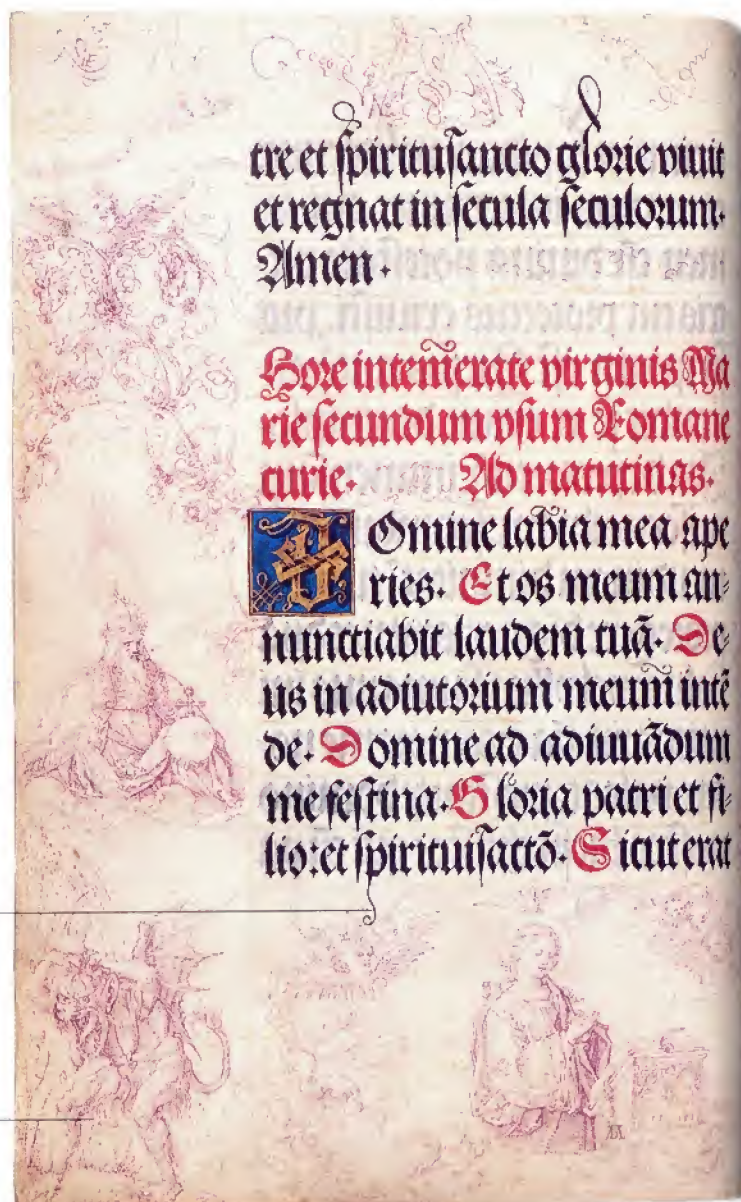 tre et ſpirituſancto glorie viuit
et regnat in ſecula ſeculorum.
Amen.
Hore intem̄erate virginis Ma
rie ſecundum vſum Romane
curie. Ad matutinas.
Domine labia mea ape
ries. Et os meum an⸗
nunctiabit laudem tuā. De
us in adiutorium meum̄ intē
de. Domine ad adiuuādum
me feſtina. Gloria patri et fi⸗
lio: et ſpirituiſāctō. Sicut erat